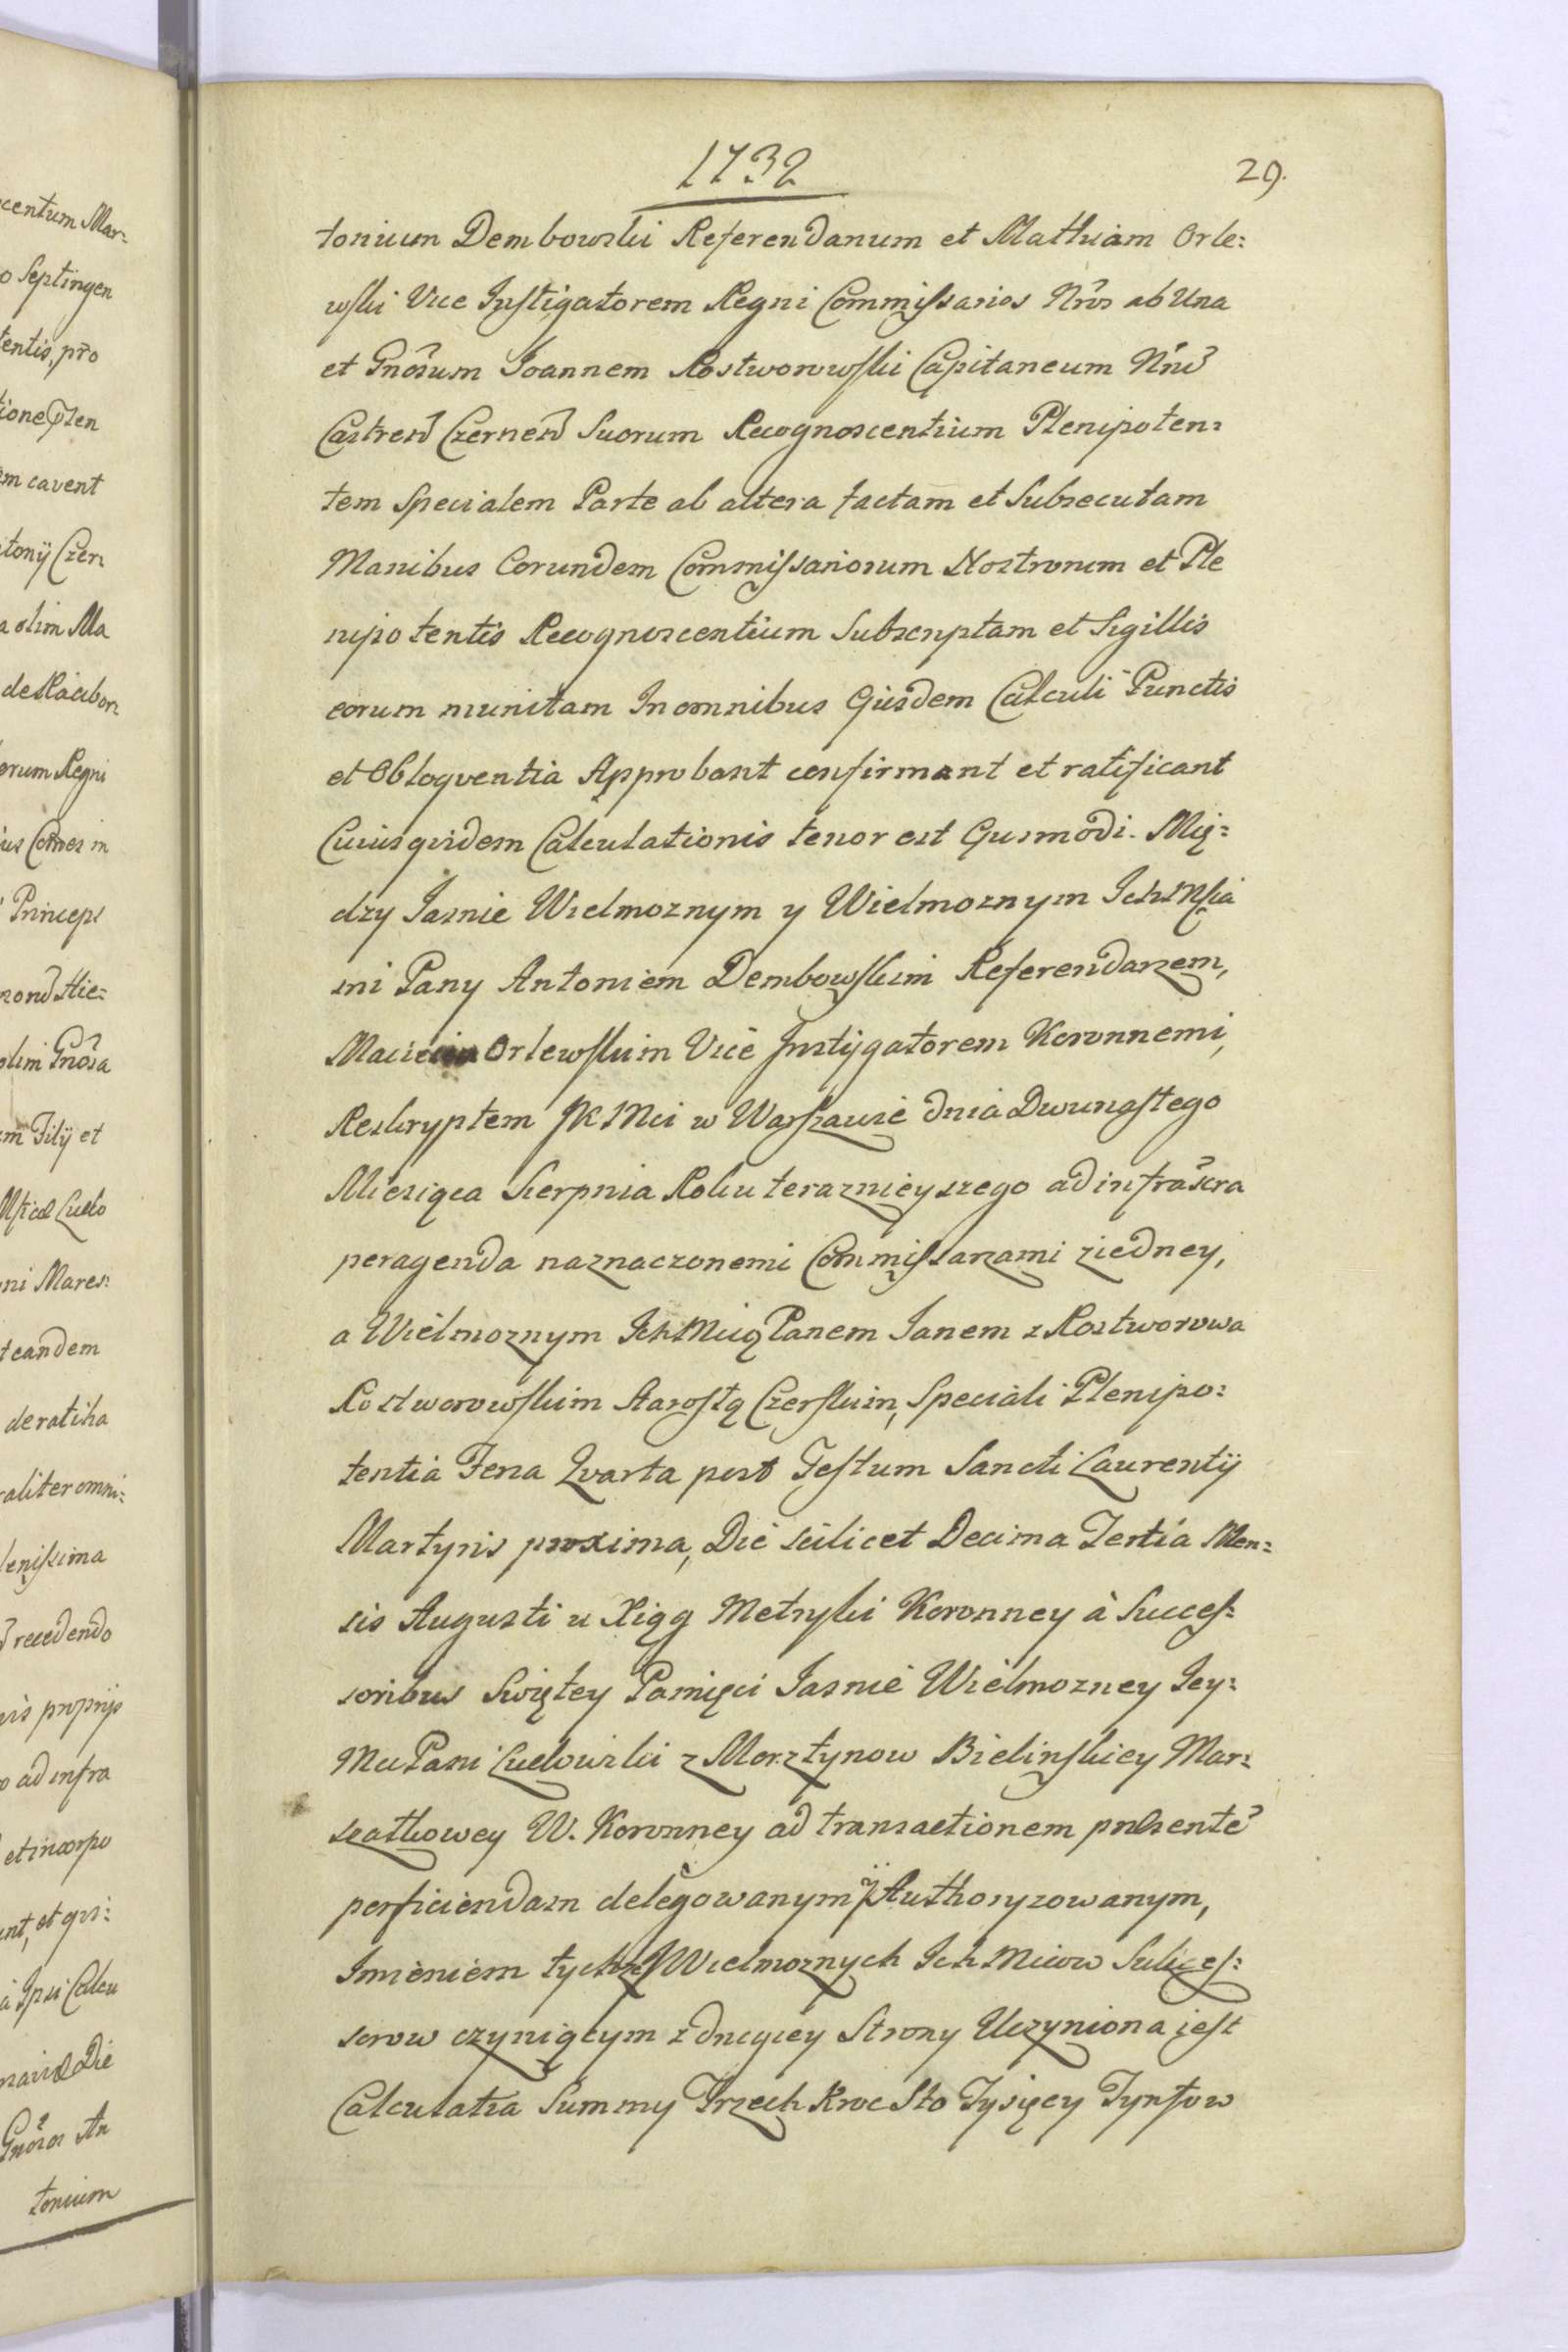 1732
29.
tonium Dembowski Referendarium et Mathiam Orle:
wski Vice Instigatorem Regni Commissarios Nros ab Una
et Gnosum Joannem Rostworowski Capitaneum Nrm
Castren Czernen Suorum Recognoscentium Plenipoten:
tem Specialem Parte ab altera factam et Subsecutam
Manibus Eorundem Commissariorum Nostrorum et Ple
nipotentis Recognoscentium Subscriptam et Sigillis
eorum munitam In omnibus Ejusdem Calculi Punctis
et Obloquentia Approbant confirmant et ratificant
Cuiusquidem Calculationis tenor est Eiusmodi. Mię:
dzy Jasnie Wielmoznym y Wielmoznym IchMścia
mi Pany Antoniem Dembowskim Referendarzem,
Macieiem Orlewskim Vice Instygatorem Koronnemi,
Reskryptem JKMci w Warszawie dnia Dwunastego
Miesiąca Sierpnia Roku teraznieyszego ad infrascra
peragenda naznaczonemi Commissarzami ziedney,
a Wielmoznym IchMcią Panem Janem z Rostworowa
Rostworowskim Starostą Czerskim, Speciali Plenipo:
tentia Feria Qvarta post Festum Sancti Laurentij
Martyris proxima, Die scilicet Decima Tertia Men:
sis Augusti u Xiąg Metryki Koronney à Succes:
soribus Swiętey Pamięci Jasnie Wielmozney Jey:
Mci Pani Ludowiki z Morsztynow Bielinskiey Mar:
szałkowey W. Koronney ad transactionem præsente
perficiendam delegowanym y Authoryzowanym,
Imieniem tychze J Wielmoznych IchMciow Sukces:
sorow czyniącym z drugiey Strony Uczyniona jest
Calculatia Summy Trzech Kroc Sto Tysięcy Tynfow
centum Mar:
o Septingen
tentis, pro
em cavent
a olim Ma
orum Regni
Princeps
olim Gnosa
m Filij et
ni Mares:
t eandem
de ratiha
raliter omni:
lenissima
recedendo
ris proprijs
o ad infra
et incorpo
unt, et qui:
Gnosos An
tonium